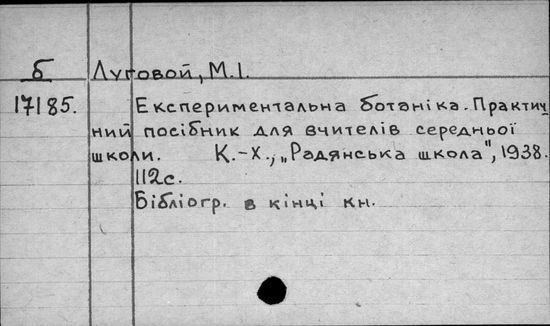 Б Луговой, М.І.
17185. Експериментальна ботаніка. Практич-
ний посібник для вчителів середньої
школи. К.-Х., „Радянська школа", 1938.
112с.
Бібліогр. в кінці кн.